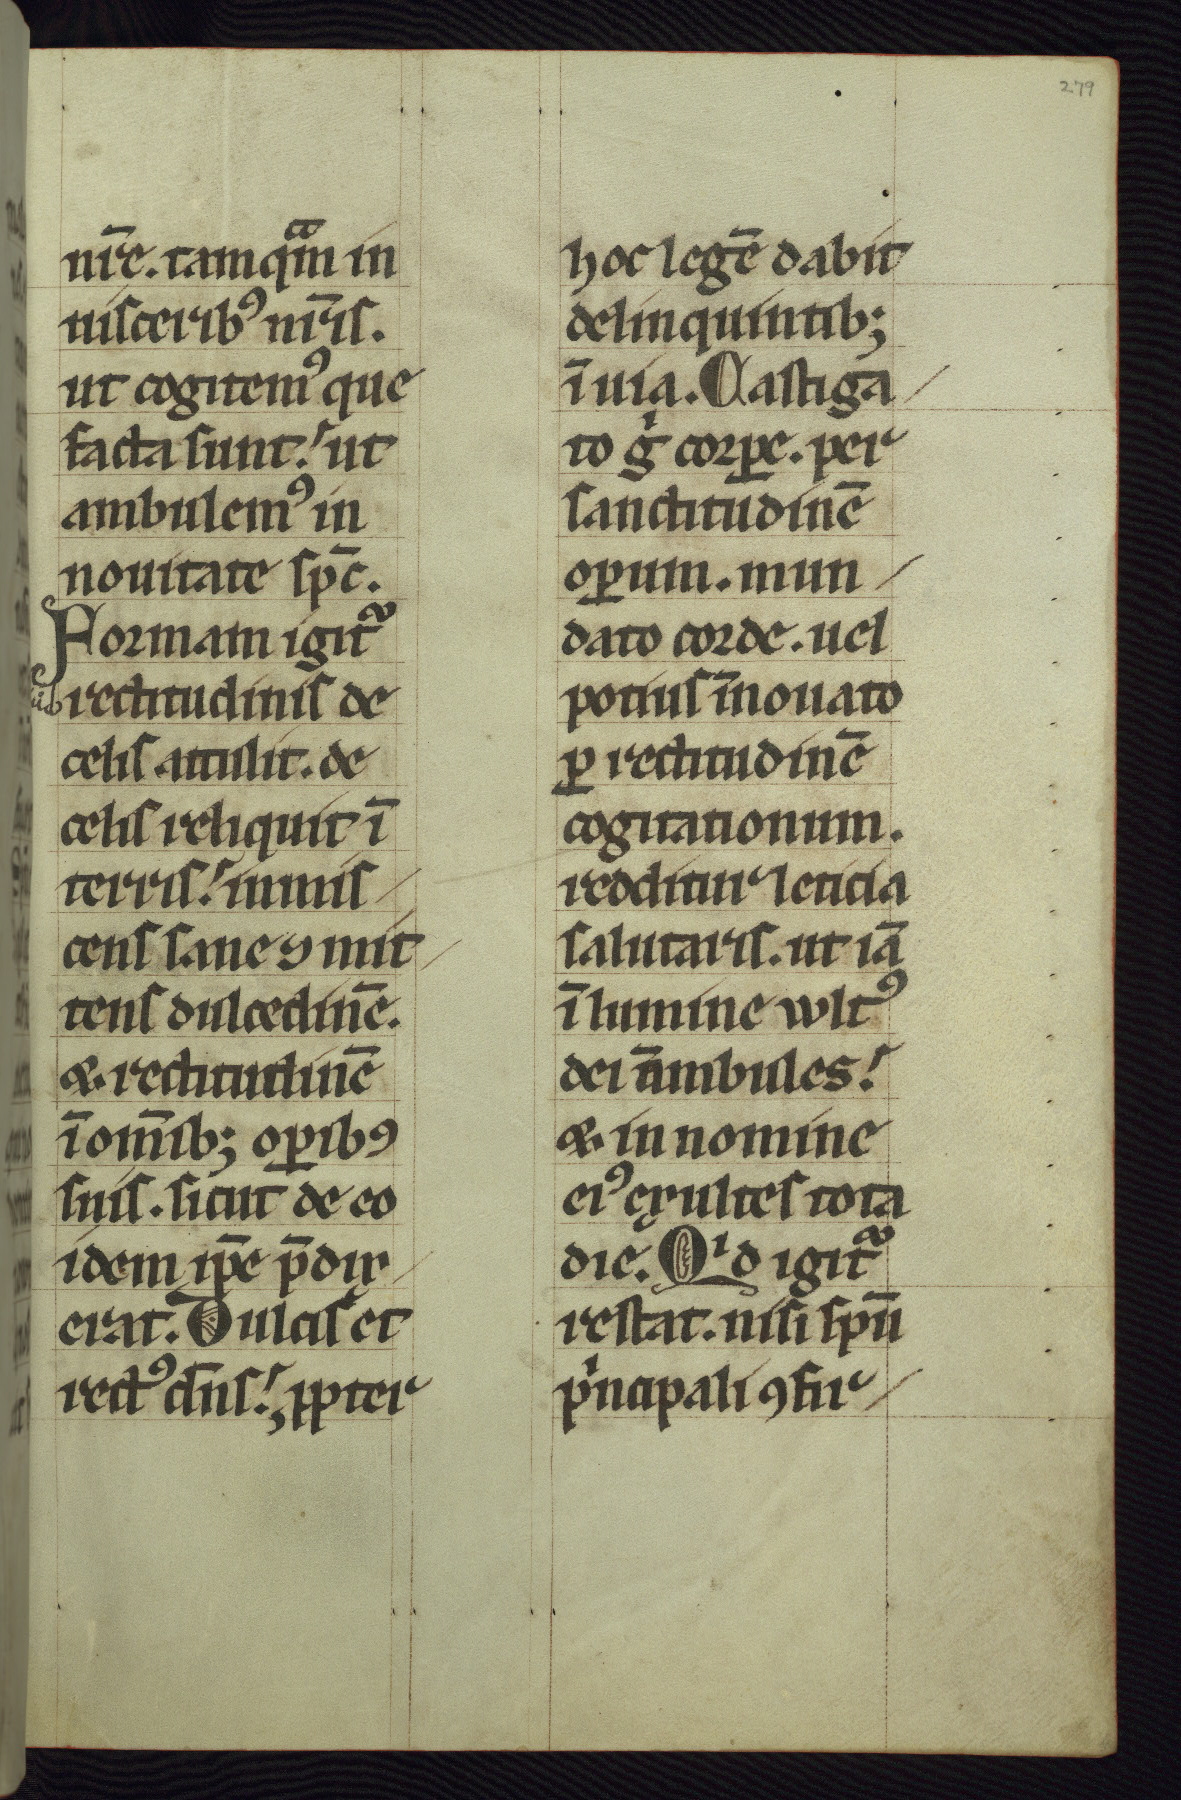 279
nr̄e. tam qͣm in
uisceribꝰ nr̄is.
ut cogitemꝰ que
facta sunt! ut
ambulemꝰ in
nouitate sp̄c.
Formam igit᷑
rectitudinis de
celis attulit. de
celis reliquit ī
terris! inmis
cens sane ꝯ mit
tens dulcedinē.
&. rectitudinē
ī om̄ib; oꝑibꝰ
suis. sicut de eo
idem ip̄e p̄dix
erat. Dulcis et
rectꝰ dn̄s! ꝓpter
hoc legē dabit
delinquintib;
ī uia. Castiga
to gͥ corꝑe. per
sanctitudinē
oꝑum. mun
dato corde. uel
potius īnouato
ꝑ rectitudinē
cogitationum.
redditur leticia
salutaris. ut iā
ī lumine wltꝰ
dei ambules!
&. in nomine
eiꝰ exultes tota
die. Qͥd igit᷑
restat. nisi spū
pͥncipali ꝯfir